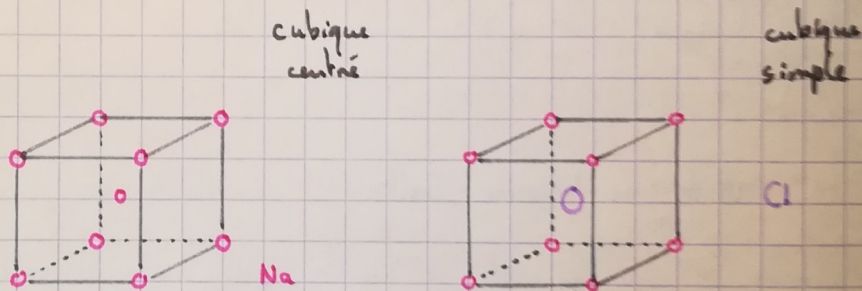 cubique
centré
cubique
simple
Na
Cl